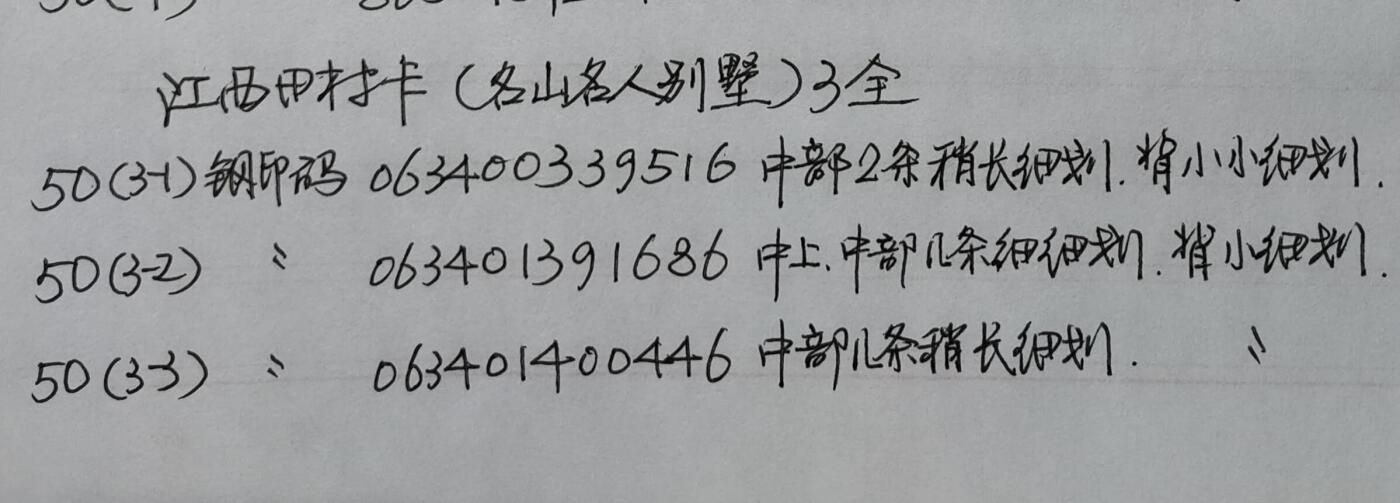 江西田村卡（名山名人别墅）3全
50（3-1）钢印码 063400339516 中部2条稍长细划.背小小细划.
50（3-2） 〃 063401391686 中上.中部几条细细划.背小细划.
50（3-3） 〃 063401400446 中部几条稍长细划. 〃